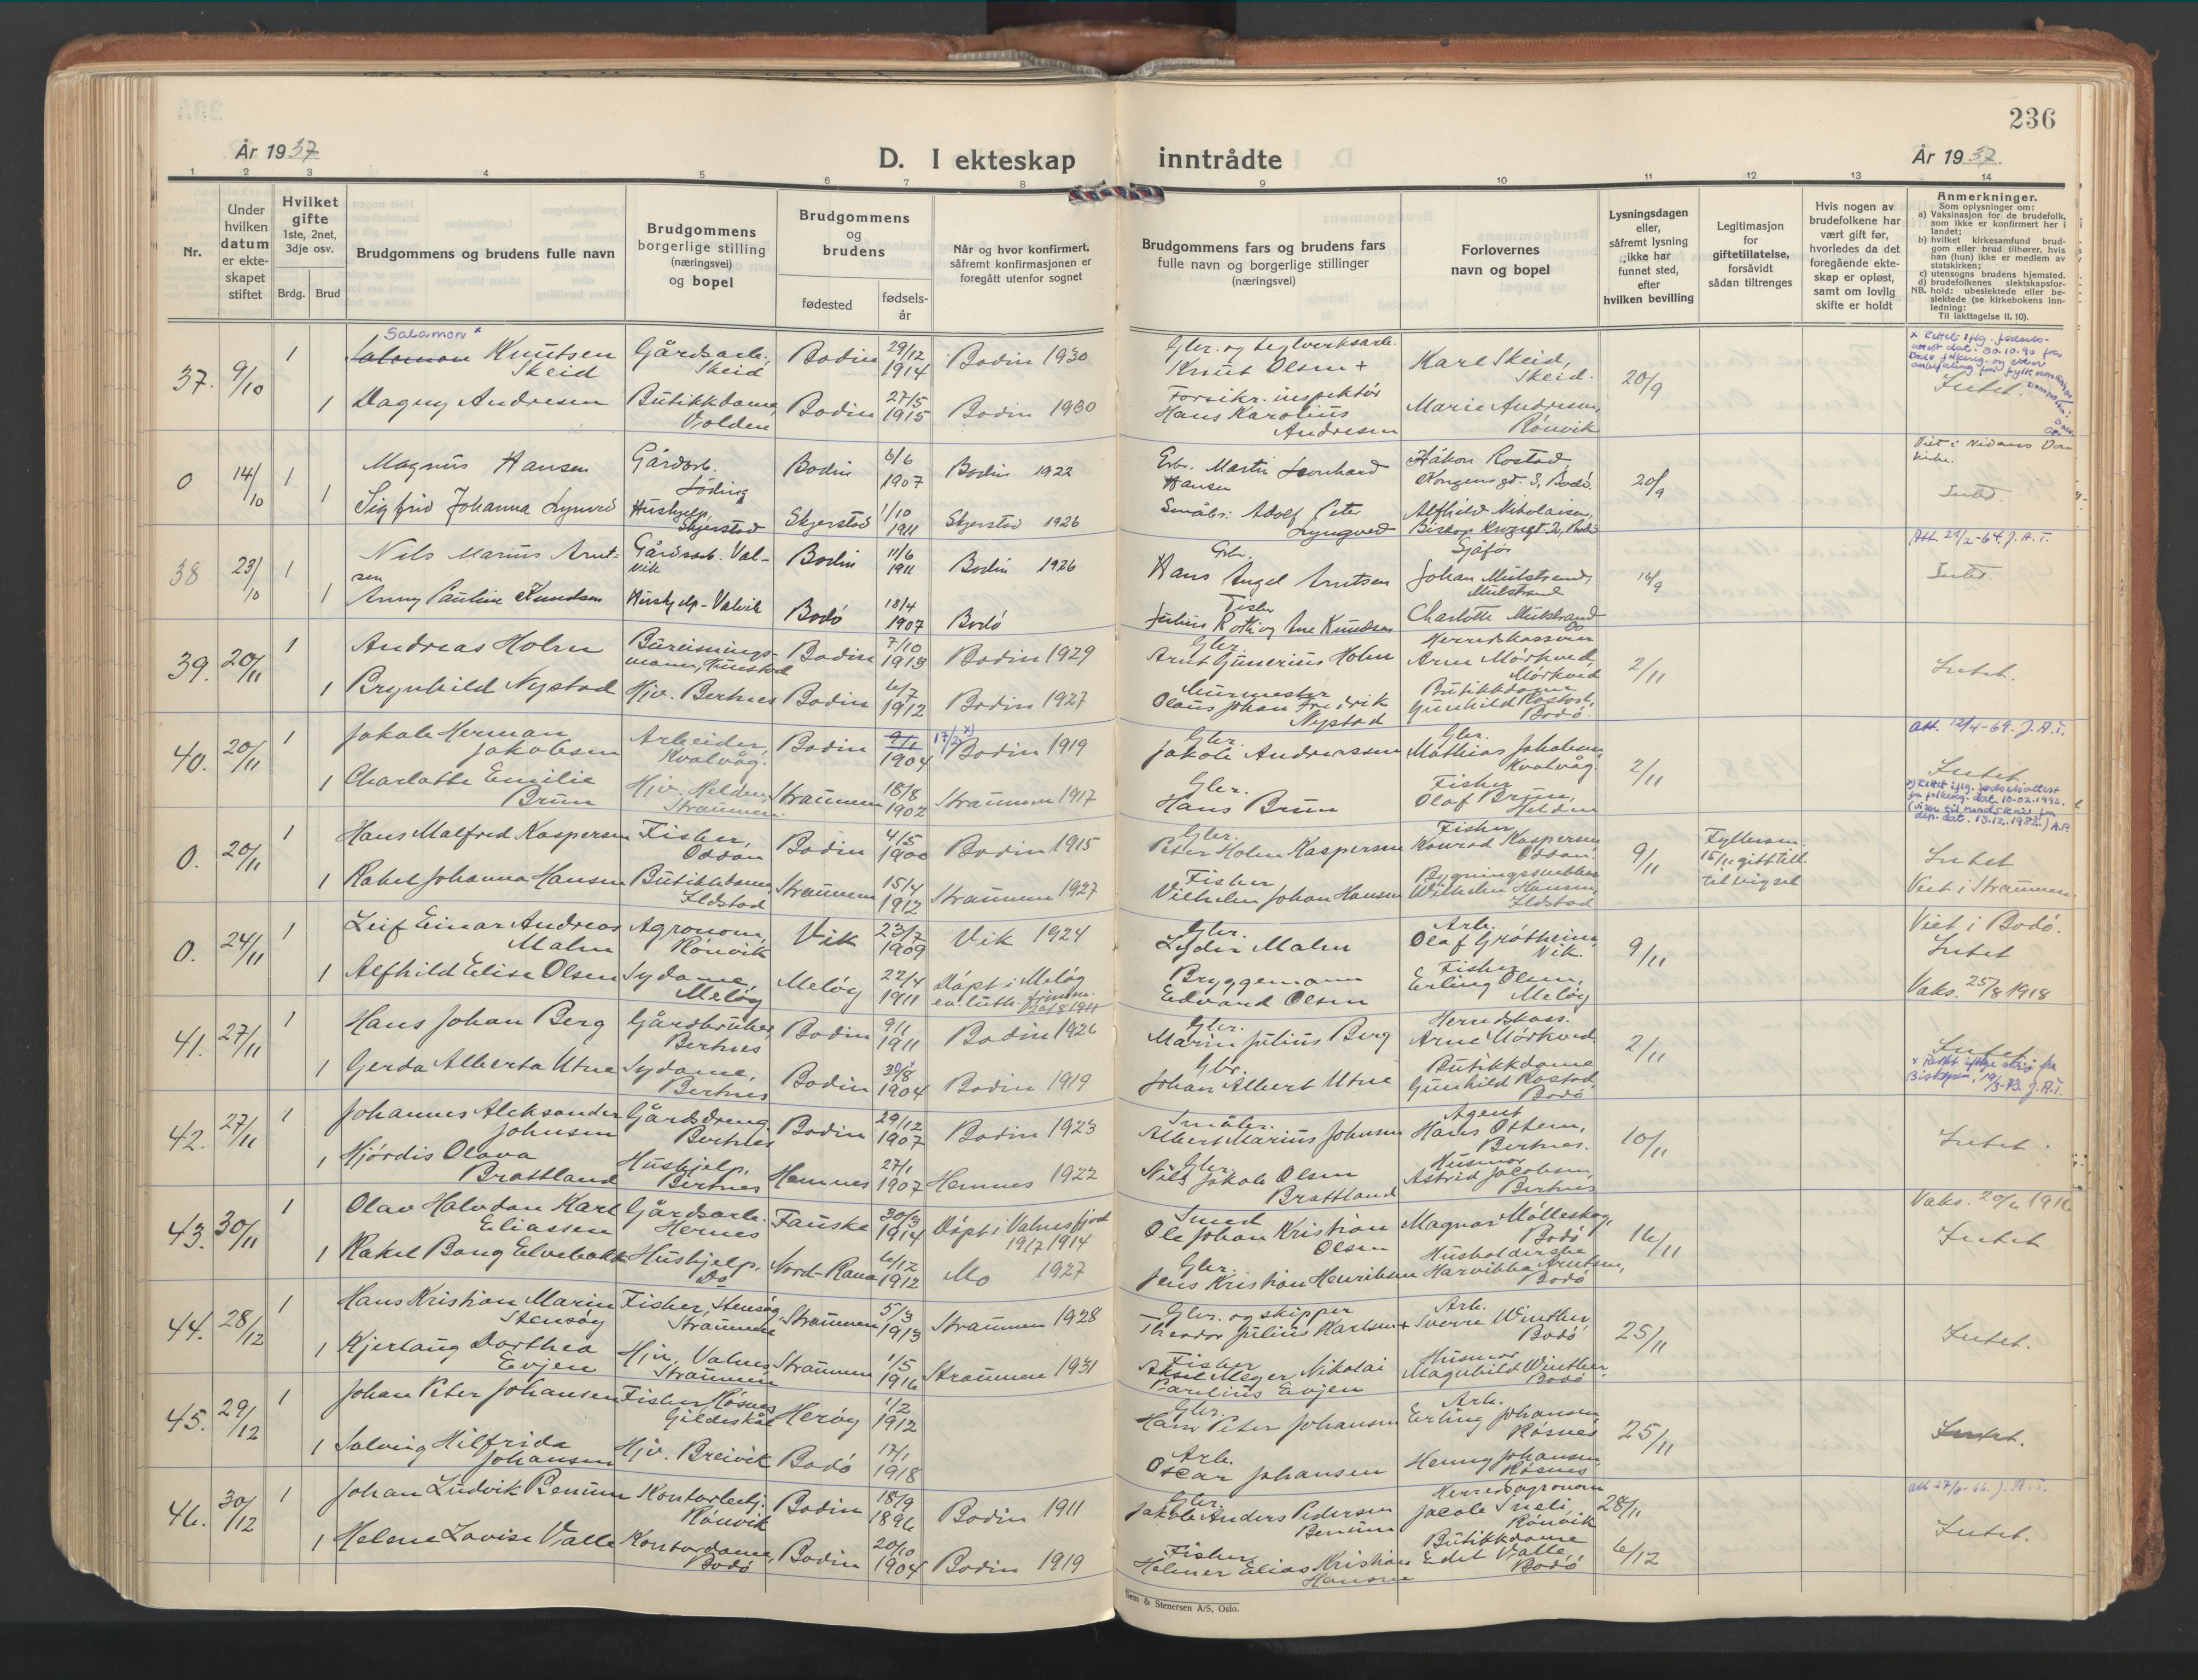 236
År 1937
D. I ekteskap inntrådte
År 1937.
1 2 3 4 5 6 7 8 9 10 11 12 13 14
Nr.
Under
hvilken
datum
er ekte-
skapet
stiftet
Hvilket
gifte
1ste, 2net,
3dje osv.
Brdg. Brud
Brudgommens og brudens fulle navn
Brudgommens
borgerlige stilling
(næringsvei)
og bopel
Brudgommens
og
brudens
fødested
fødsels-
år
Når og hvor konfirmert,
såfremt konfirmasjonen er
foregått utenfor sognet
Brudgommens fars og brudens fars
fulle navn og borgerlige stillinger
(næringsvei)
Forlovernes
navn og bopel
Lysningsdagen
eller,
såfremt lysning
ikke har
funnet sted,
efter
hvilken bevilling
Legitimasjon
for
giftetillatelse,
forsåvidt
sådan tiltrenges
Hvis nogen av
brudefolkene har
vært gift før,
hvorledes da det
foregående ekte-
skap er opløst,
samt om lovlig
skifte er holdt
Anmerkninger.
Som oplysninger om:
a) Vaksinasjon for de brudefolk,
som ikke er konfirmert her i
landet;
b) hvilket kirkesamfund brud-
gom eller brud tilhører, hvis
han (hun) ikke er medlem av
statskirken;
c) utensogns brudens hjemsted.
d) brudefolkenes slektskapsfor-
NB. hold: ubeslektede eller be-
slektede (se kirkebokens inn-
ledning:
Til iakttagelse II. 10).
37. 9/10
1 Salamon x
Salomon Knutsen
Skeid
Gårdsarb.,
Skeid
Bodin
29/12
1914
Bodin 1930
Gbr. og teglverksarb.
Knut Olsen +
Karl Skeid,
Skeid.
20/9
Intet.
1 Dagny Andresen
Butikkdame,
Volden
Bodin
27/5
1915
Bodin 1930
Forsikr. inspektør
Hans Karolius
Andresen
Marie Andresen,
Rønvik
0 14/10
1 Magnus Hansen
Gårdarb.
Løding
Bodin
6/6
1907
Bodin 1922
Gbr. Martin Leonhard
Hansen
Håkon Rostad,
Kongensgt. 3, Bodø.
20/9
Viet i Nidaros Dom
kirke.
1 Sigfrid Johanna Lyngved
Hushjelp,
Skjerstad
Skjerstad
1/10
1911
Skjerstad 1926
Småbr. Adolf Peter
Lyngved
Alfhild Nikolaisen,
38 23/10
1 Nils Marius Arnt-
sen
Gårdsarb. Val-
vik
Bodin
11/6
1911
Bodin 1926
Gbr.
Hans Angel Arntsen
Sjåfør
Johan Mulstrand,
Mulstrand
16/9
Att. 21/2-64. J.A.T.
1 Anny Pauline Knudsen
Hushjelp - Valvik
Bodø
18/4
1907
Bodø
Fisker
Julius Roth og Ane Knudsen
Charlotte Mulstrand
Do
39. 20/11
1 Andreas Holm
Bureisnings-
mann, Runstad
Bodin
7/10
1913
Bodin 1929
Gbr.
Arnt Gunerius Holm
Herredskasserer
Arne Mørkved,
Mørkved
2/11
Intet.
1 Brynhild Nystad
Hjv. Bertnes
Bodin
6/7
1912
Bodin 1927
Murmester
Olaus Johan Fredrik
Nystad
Butikkdame
Gunhild Rostad,
Bodø.
40. 20/11
1 Jakob Herman
Jakobsen
Arbeider,
Kvalvåg.
Bodin
9/1
1904
17/2 x)
Bodin 1919
Gbr.
Jakob Andreassen
Gbr.
Mathias Jakobsen,
Kvalvåg.
2/11
Att. 12/4-69. J.A.T.
Intet.
1 Charlotte Emilie
Brun
Hjv. Helden,
Straumen
Straumen
18/8
1902
Straumen 1917
Gbr.
Hans Brun
Fisker
Olaf Brun,
Helden
x) Rettet iflg. fødselsattest
fra folkereg. dat. 10.02.1992.
(viser til rundskriv fra
dep. dat. 13.12.1982.) A.P.
0. 20/11
1 Hans Malfred Kaspersen
Fisker,
Oddan
Bodin
4/5
1900
Bodin 1915
Gbr.
Peter Holm Kaspersen
Fisker
Konrad Kaspersen
Oddan.
9/11
15/11 gitt till.
til vigsel
Intet
Viet i Straumen
1 Rakel Johanna Hansen
Butikkdame,
Ildstad
Straumen
15/4
1912
Straumen 1927
Fisker
Vilhelm Johan Hansen
Bygningssnekker
Wilhelm Hansen,
Ildstad
0. 24/11
1 Leif Einar Andreas
Malm
Agronom,
Rønvik
Vik
23/7
1909
Vik 1924
Gbr.
Lyder Malm
Arb.
Olaf Grøtheim,
Vik.
9/11
Viet i Bodø.
Intet
1 Alfhild Elise Olsen
Sydame,
Meløy
Meløy
22/4
1911
Døpt i Meløy
ev. luth. frimen.
20/8 1911
Bryggemann
Edvard Olsen
Fisker
Erling Olsen,
Meløy
Vaks. 25/8 1918
41. 27/11
1 Hans Johan Berg
Gårdbruker,
Bertnes
Bodin
9/1
1911
Bodin 1926
Gbr.
Marin Julius Berg
Herredskass.
Arne Mørkved
2/11
Intet.
1 Gerda Alberta Utne
Sydame,
Bertnes
Bodin
30/8 x
1904
Bodin 1919
Gbr.
Johan Albert Utne
Butikkdame
Gunhild Rostad,
Bodø
42. 27/11
1 Johannes Aleksander
Johnsen
Gårdsdreng
Bertnes
Bodin
29/12
1907
Bodin 1923
Småbr.
Albert Marius Johnsen
Agent
Hans Ottem,
Bertnes.
10/11
Intet.
1 Hjørdis Olava
Brattland
Hushjelp,
Bertnes
Hemnes
27/1
1907
Hemnes 1922
Gbr.
Nils Jakob Olsen
Brattland
Husmor
Astrid Jacobsen,
Bertnes
43. 30/11
1 Olav Halvdan Karl
Eliassen
Gårdsarb.
Hernes
Fauske
30/3
1914
Døpt i Valnesfjord
19/7 1914
Smed
Ole Johan Kristian
Olsen
Magnar Mølleskog,
Bodø
16/11
Vaks. 20/6 1916
Intet
1 Rakel Bang Elvebakk
Hushjelp.
Do
Nord-Rana
6/12
1912
Mo 1927
Gbr.
Jens Kristian Henriksen
Husholderske
Harvikka Arntsen,
Bodø
44. 28/12
1 Hans Kristian Marin
Stensøy
Fisker, Stensøy,
Straumen
Straumen
5/3
1913
Straumen 1928
Gbr. og skipper
Theodor Julius Karlsen +
Arb.
Sverre Winther
Bodø
25/11
Intet.
1 Kjerlaug Dorthea
Evjen
Hjv. Valnes
Straumen
Straumen
1/5
1916
Straumen 1931
Fisker
Aksel Meyer Nikolai
Parelius Evjen
Husmor
Magnhild Winther,
Bodø
45. 29/12
1 Johan Peter Johansen
Fisker Røsnes
Gildeskål
Herøy
1/2
1912
Gbr.
Hans Peter Johansen
Arb.
Erling Johansen,
Røsnes
25/11
Intet.
1 Solveig Hilfrida
Johansen
Hjv. Breivik
Bodø
17/1
1918
Arb.
Oscar Johansen
Henny Johansen,
Røsnes
46. 30/12
1 Johan Ludvik Benum
Kontorbetj.
Rønvik
Bodin
18/9
1896
Bodin 1911
Gbr.
Jakob Anders Pedersen
Benum
Herredsagronom
Jacob Sneli
Rønvik
28/11
Intet.
1 Helene Lovise Valle
Kontordame,
Bodø
Bodin
20/10
1904
Bodin 1919
Fisker
Helmer Elias Kristian
Hansen
Butikkdame
Edel Valle,
Bodø
6/12
& Stenersen A/S, Oslo.